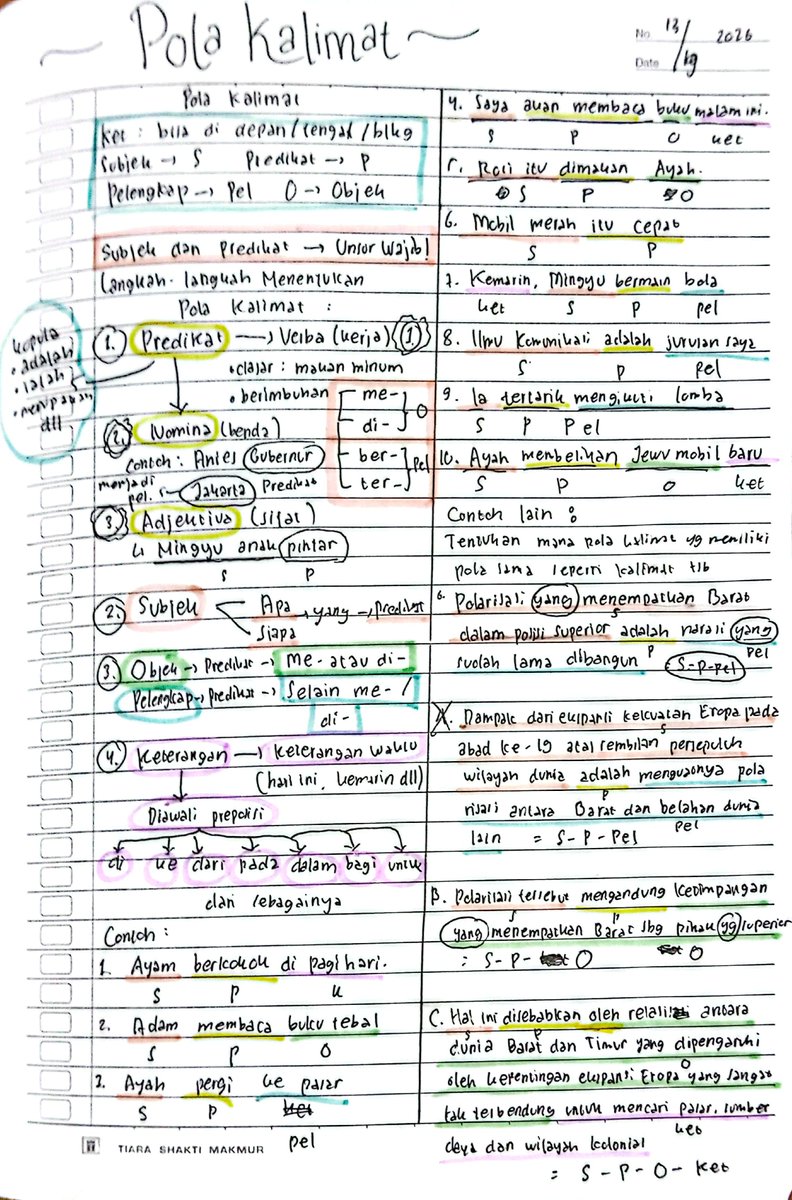 ~ Pola Kalimat ~
No. 13/
Date /kg 2026
Pola Kalimat
Ket : bisa di depan/tengah/blkg
Subjek → S Predikat → P
Pelengkap → Pel O → Objek
Subjek dan Predikat → Unsur Wajib!
Langkah-langkah Menentukan
Pola Kalimat :
kopula
• adalah
• ialah
• merupakan
dll
1. Predikat → Verba (kerja) (1)
• dasar : makan minum
• berimbuhan
me-
di-
} O
ber-
ter-
} Pel
2. Nomina (benda)
contoh : Anies Gubernur
menjadi pel. Jakarta Predikat
3. Adjektiva (sifat)
↳ Mingyu anak pintar
S P
2. Subjek < Apa, yang → predikat
Siapa
3. Objek → Predikat → Me- atau di-
Pelengkap → Predikat → Selain me- /
di-
4. Keterangan → Keterangan waktu
(hari ini, kemarin dll)
Diawali preposisi
di ke dari pada dalam bagi untuk
dan sebagainya
Contoh :
1. Ayam berkokok di pagi hari.
S P K
2. Adam membaca buku tebal
S P O
3. Ayah pergi ke pasar
S P
pel
TIARA SHAKTI MAKMUR
4. Saya akan membaca buku malam ini.
S P O ket
5. Roti itu dimakan Ayah.
S P O
6. Mobil merah itu cepat
S P
7. Kemarin, Mingyu bermain bola
ket S P pel
8. Ilmu Komunikasi adalah jurusan saya
S P pel
9. Ia tertarik mengikuti lomba
S P Pel
10. Ayah membelikan Jewu mobil baru
S P O ket
Contoh lain :
Tentukan mana pola kalimat yg memiliki
pola sama seperti kalimat tsb
6. Polarisasi yang menempatkan Barat
S
dalam posisi superior adalah narasi yang
P pel
sudah lama dibangun S-P-pel
A. Dampak dari ekspansi kekuatan Eropa pada
abad ke-19 atas sembilan persepuluh
S
wilayah dunia adalah menguatnya pola
P
risasi antara Barat dan belahan dunia
pel
lain = S - P - Pel
B. Polarisasi tersebut mengandung ketimpangan
S P
yang menempatkan Barat sbg pihak yg superior
= S - P - O O
C. Hal ini disebabkan oleh relasi antara
S P
dunia Barat dan Timur yang dipengaruhi
O
oleh kepentingan ekspansi Eropa yang sangat
tak terbendung untuk mencari pasar, sumber
ket
daya dan wilayah kolonial
= S - P - O - Ket